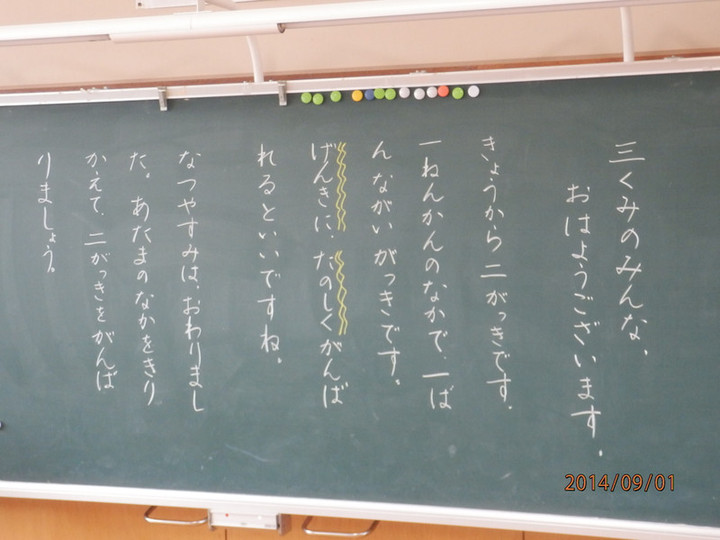 三くみのみんな、
おはようございます。
きょうから二がっきです。
一ねんかんのなかで、一ば
んながいがっきです。
げんきに、たのしくがんば
れるといいですね。
なつやすみは、おわりまし
た。あたまのなかをきり
かえて、二がっきをがんば
りましょう。
2014/09/01